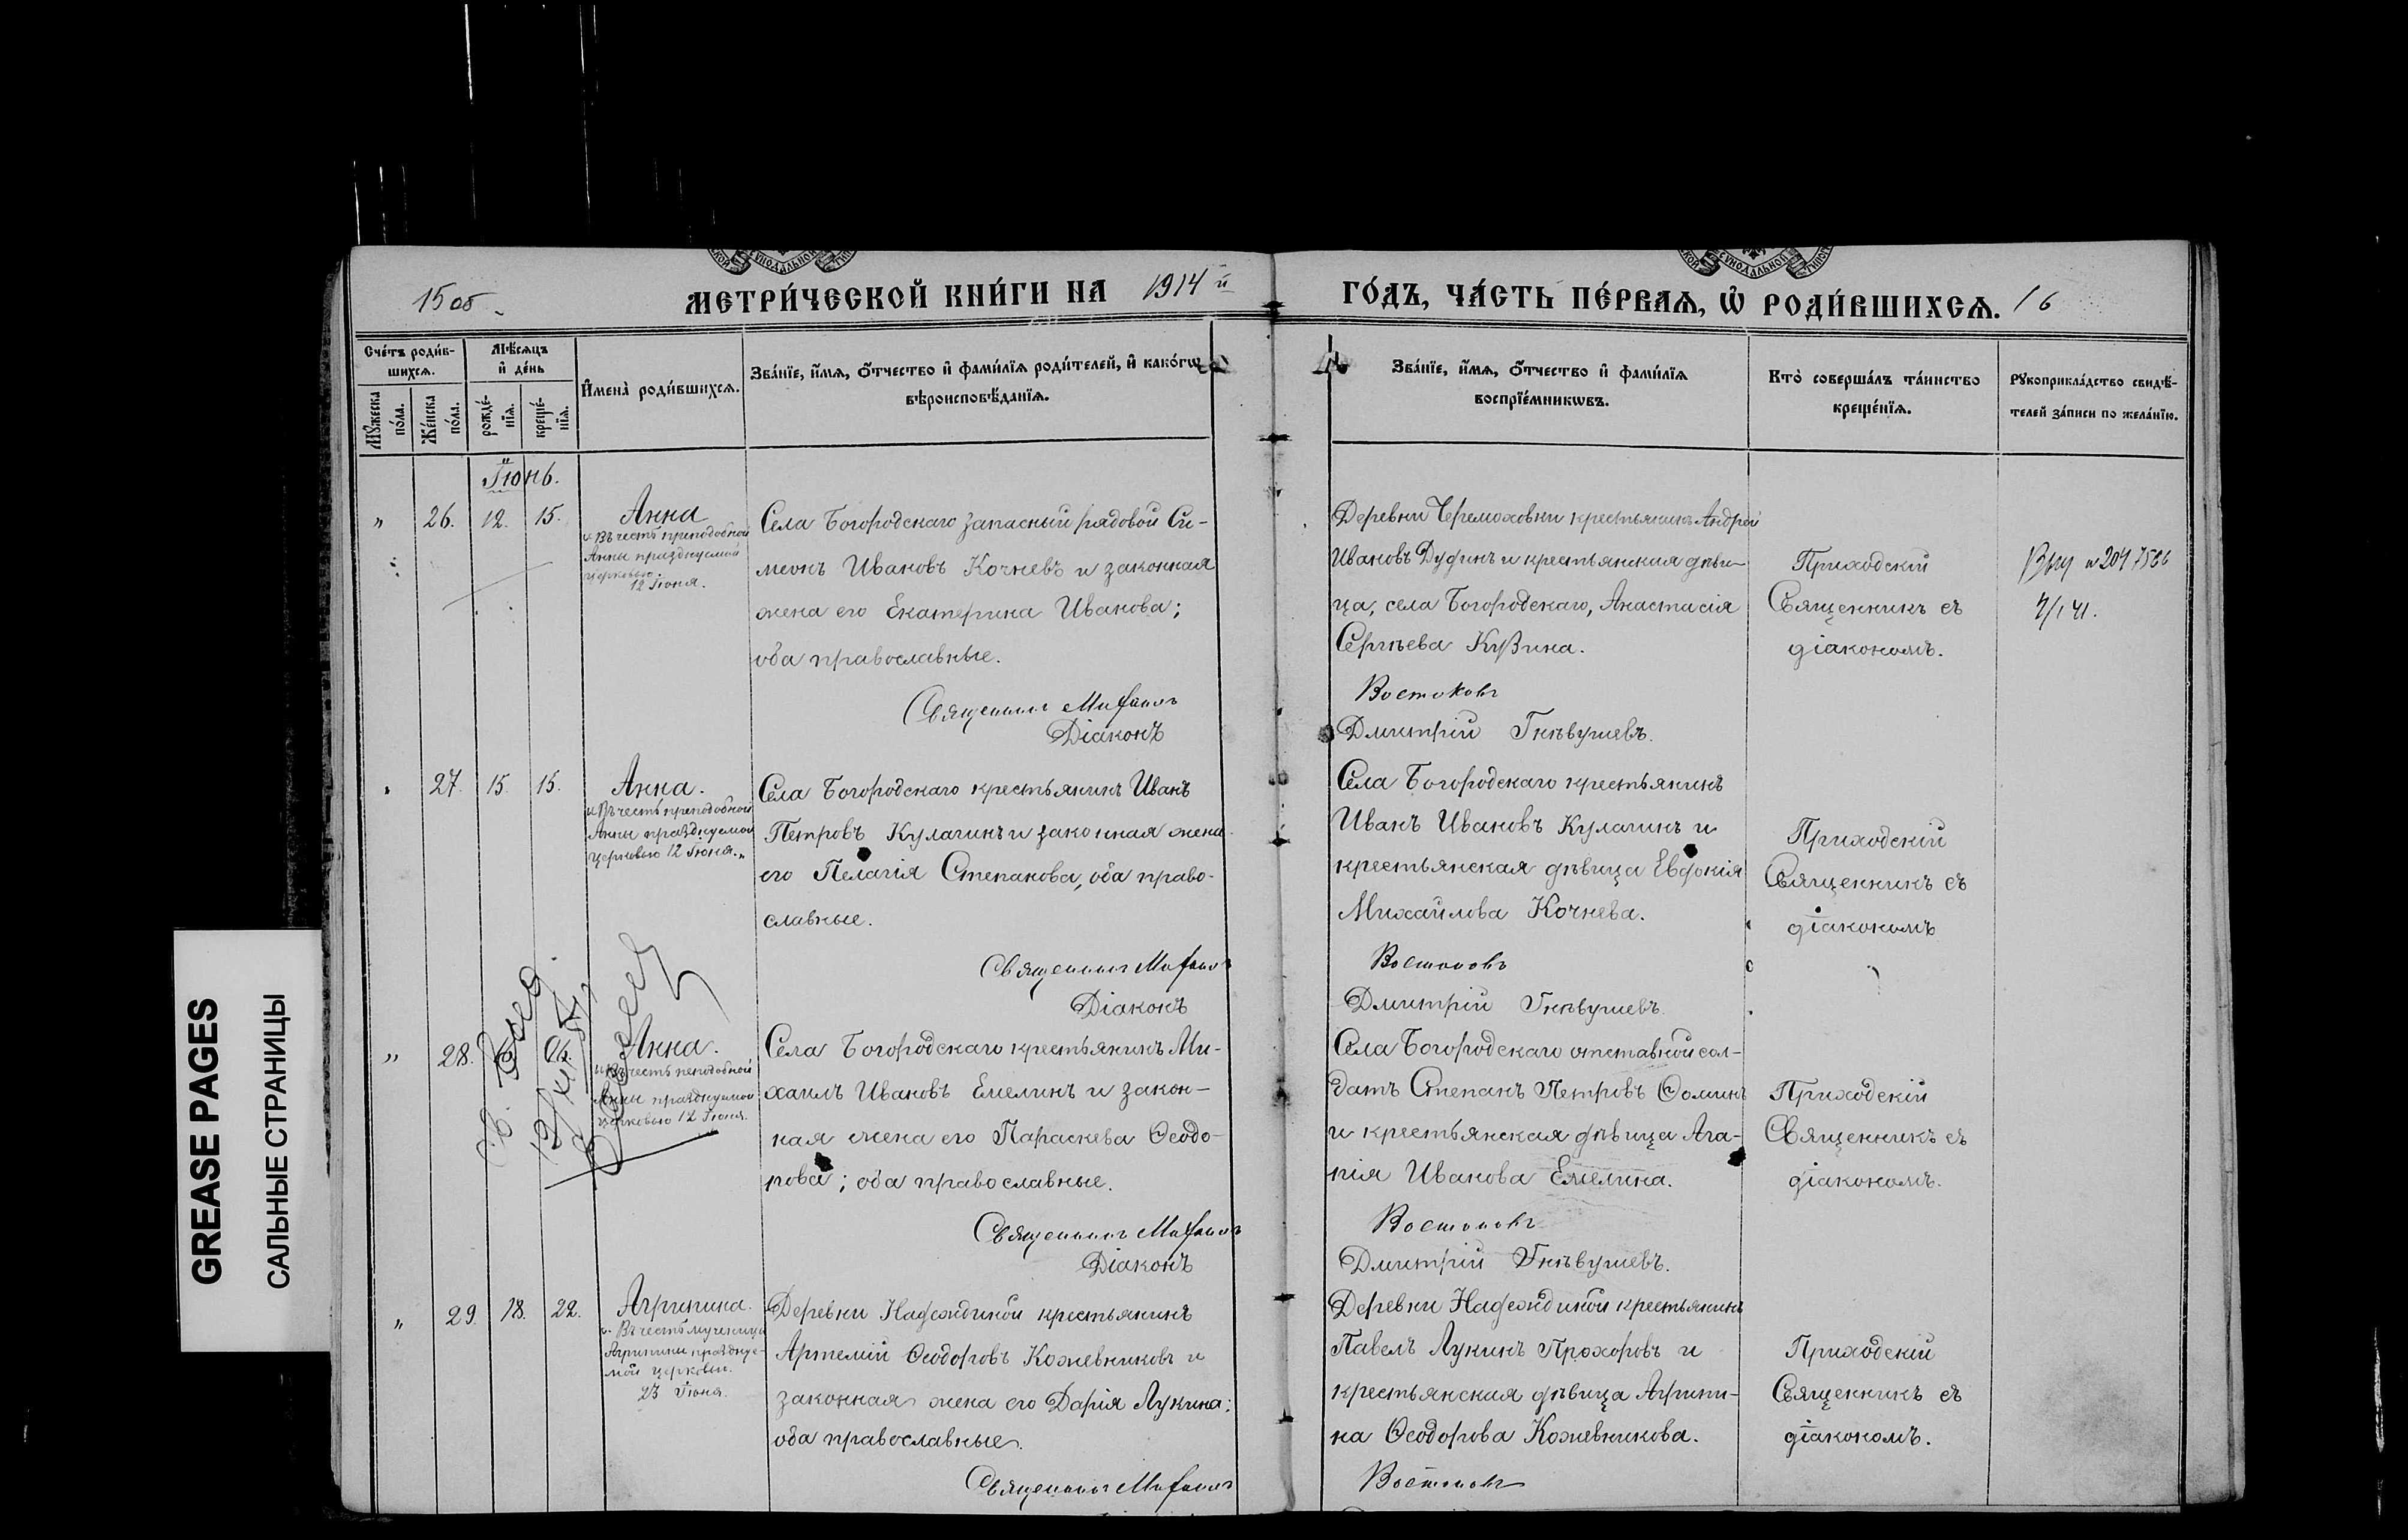 15 об.
МЕТРИ́ЧЕСКОЙ КНИ́ГИ НА 1914 й
ГО́ДЪ, ЧА́СТЬ ПЕ́РВАѦ, Ѽ РОДИ́ВШИХСѦ. 16
Сче́тъ роди́в-
шихсѧ.
Мꙋ́жеска
по́ла.
Же́нска
по́ла.
Мѣ́сѧцъ
и҆ де́нь
рожде́-
нїѧ.
креще́-
нїѧ.
И҆мена̀ роди́вшихсѧ.
Зва́нїе, и҆́мѧ, ѻ҆́тчество и҆ фами́лїѧ роди́телей, и҆ како́гѡ
вѣроисповѣ́данїѧ.
Зва́нїе, и҆́мѧ, ѻ҆́тчество и҆ фами́лїѧ
воспрїе́мникѡвъ.
Кто̀ соверша́лъ та́инство
креще́нїѧ.
Рꙋкоприкла́дство свидѣ́-
телей за́писи по жела́нїю.
Іюнь.
" 26. 12. 15.
Анна
Въ честь преподобной
Анны празднуемой
церковью
12 Іюня.
Села Богородскаго запасный рядовой Си-
меонъ Ивановъ Кочневъ и законная
жена его Екатерина Иванова;
оба православные.
Священникъ Михаилъ
Діаконъ
Деревни Черемоховки крестьянинъ Андрей
Ивановъ Дудинъ и крестьянская дѣви-
ца, села Богородскаго, Анастасія
Сергѣева Кузина.
Востоковъ
Дмитрій Гнѣвушевъ.
Приходскій
Священникъ съ
діакономъ.
" 27. 15. 15.
Анна.
Въ честь преподобной
Анны празднуемой
церковью 12 Іюня.
Села Богородскаго крестьянинъ Иванъ
Петровъ Кулагинъ и законная жена
его Пелагія Степанова, оба право-
славные.
Священникъ Михаилъ
Діаконъ
Села Богородскаго крестьянинъ
Иванъ Ивановъ Кулагинъ и
крестьянская дѣвица Евдокія
Михайлова Кочнева.
Востоковъ
Дмитрій Гнѣвушевъ.
Приходскій
Священникъ съ
діакономъ
" 28.
Анна.
Въ честь преподобной
Анны празднуемой
церковью 12 Іюня.
Села Богородскаго крестьянинъ Ми-
хаилъ Ивановъ Емелинъ и закон-
ная жена его Параскева Ѳеодо-
рова; оба православные.
Священникъ Михаилъ
Діаконъ
Села Богородскаго отставной сол-
датъ Степанъ Петровъ Ѳоминъ
и крестьянская дѣвица Ага-
пія Иванова Емелина.
Востоковъ
Дмитрій Гнѣвушевъ.
Приходскій
Священникъ съ
діакономъ.
" 29. 18. 22.
Агрипина.
Въ честь мученицы
Агрипины празднуе-
мой церковью
23 Іюня.
Деревни Надеждиной крестьянинъ
Артемій Ѳеодоровъ Кожевниковъ и
законная жена его Дарія Лукина;
оба православные.
Священникъ Михаилъ
Деревни Надеждиной крестьянинъ
Павелъ Лукинъ Прохоровъ и
крестьянская дѣвица Агрипи-
на Ѳеодорова Кожевникова.
Востоковъ
Приходскій
Священникъ съ
діакономъ.
GREASE PAGES
САЛЬНЫЕ СТРАНИЦЫ